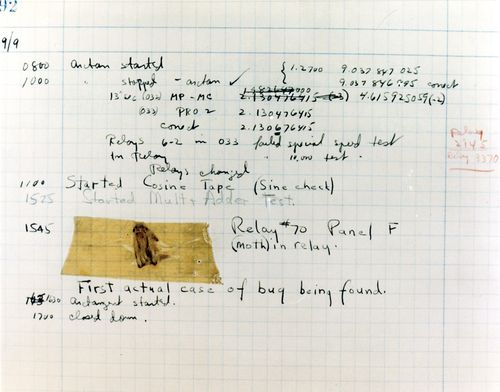 92
9/9
0800 Antan started { 1.2700 9.037 847 025
1000 " stopped - antan ✓ 9.037 846 995 correct
13"uc (032) MP - MC 2.130476415 4.615925059(-2)
(033) PRO 2 2.130476415
correct 2.130676415
Relays 6-2 in 033 failed special speed test
In Relay " 10,000 test.
Relay
2145
Relay 3370
Relays changed
1100 Started Cosine Tape (Sine check)
1525 Started Mult + Adder Test.
1545 Relay #70 Panel F
(Moth) in relay.
First actual case of bug being found.
1630 antangent started.
1700 closed down.